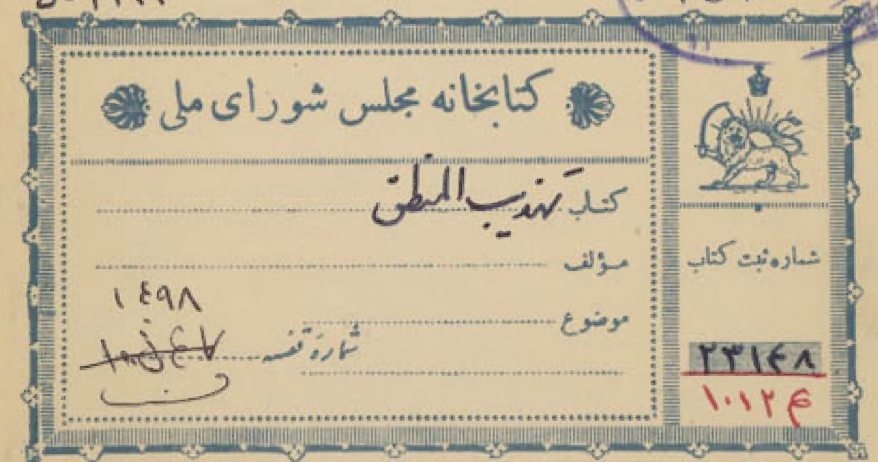 کتابخانه مجلس شورای ملی
کتاب تهذیب المنطق
مؤلف
موضوع
شماره قفسه
۱۴۹۸
شماره ثبت کتاب
۲۳۱۴۸